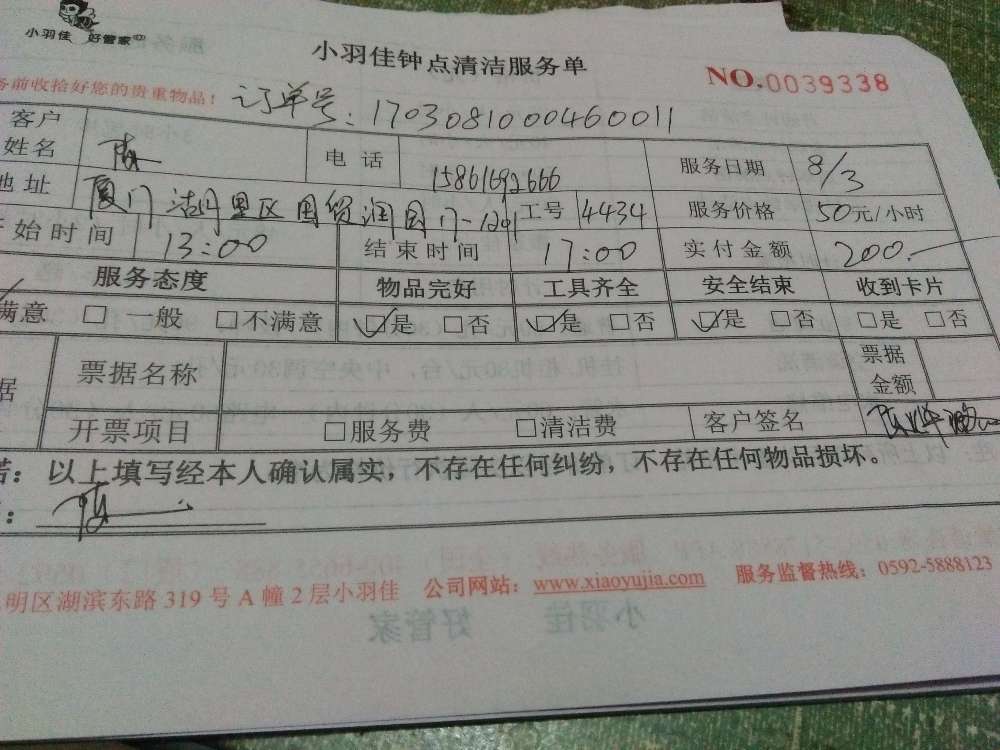 小羽佳 好管家
小羽佳钟点清洁服务单
NO.0039338
务前收拾好您的贵重物品!
订单号:1703081000460011
客户姓名 电话 15861692666 服务日期 8/3
地址 厦门 里区国贸润园 工号 4434 服务价格 50元/小时
开始时间 13:00 结束时间 17:00 实付金额 200.-
服务态度 物品完好 工具齐全 安全结束 收到卡片
满意 □ 一般 □不满意 ☑是 □否 ☑是 □否 ☑是 □否 □是 □否
据 票据名称 票据金额
开票项目 □服务费 □清洁费 客户签名
诺:以上填写经本人确认属实,不存在任何纠纷,不存在任何物品损坏。
:
明区湖滨东路 319 号 A 幢 2 层小羽佳 公司网站:www.xiaoyujia.com 服务监督热线:0592-5888123